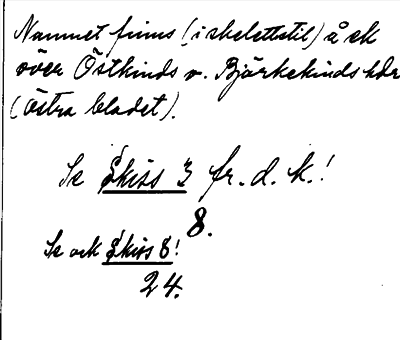 Namnet finns (i skelettstil) å ek
över Östkinds o. Björkekinds hdr
(östra bladet).
Se Skiss 3 fr. d. k.!
8.
Se ock Skiss 8!
24.